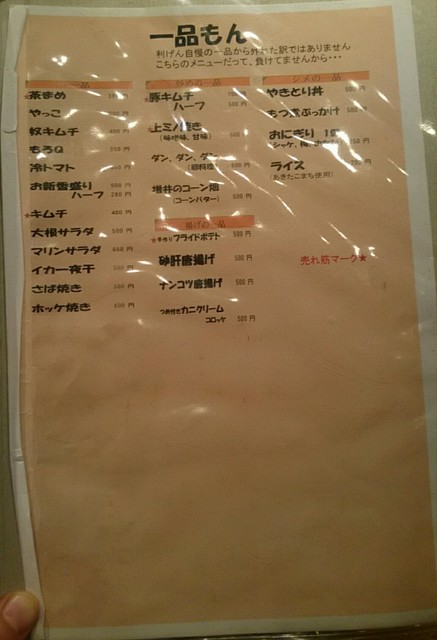 一品もん
利げん自慢の一品から外れた訳ではありません
こちらのメニューだって、負けてませんから・・・
★茶まめ
やっこ
奴キムチ 400円
もろQ 350円
冷トマト
お新香盛り 500円
ハーフ 280円
★キムチ 400円
大根サラダ 500円
マリンサラダ 660円
イカ一夜干 500円
さば焼き 500円
ホッケ焼き 600円
炒めの一品
★豚キムチ
ハーフ 500円
上ミノ焼き 500円
(味噌味、甘味)
ダン、ダン、ダ
増井のコーン畑 500円
(コーンバター)
揚げの一品
★手作りフライドポテト 500円
砂肝唐揚げ 500円
ナンコツ唐揚げ 500円
つめ付きカニクリーム
コロッケ 500円
シメの一品
やきとり丼
もつ煮ぶっかけ 500円
おにぎり 1個
シャケ、梅、 250円
ライス
(あきたこまち使用)
売れ筋マーク★